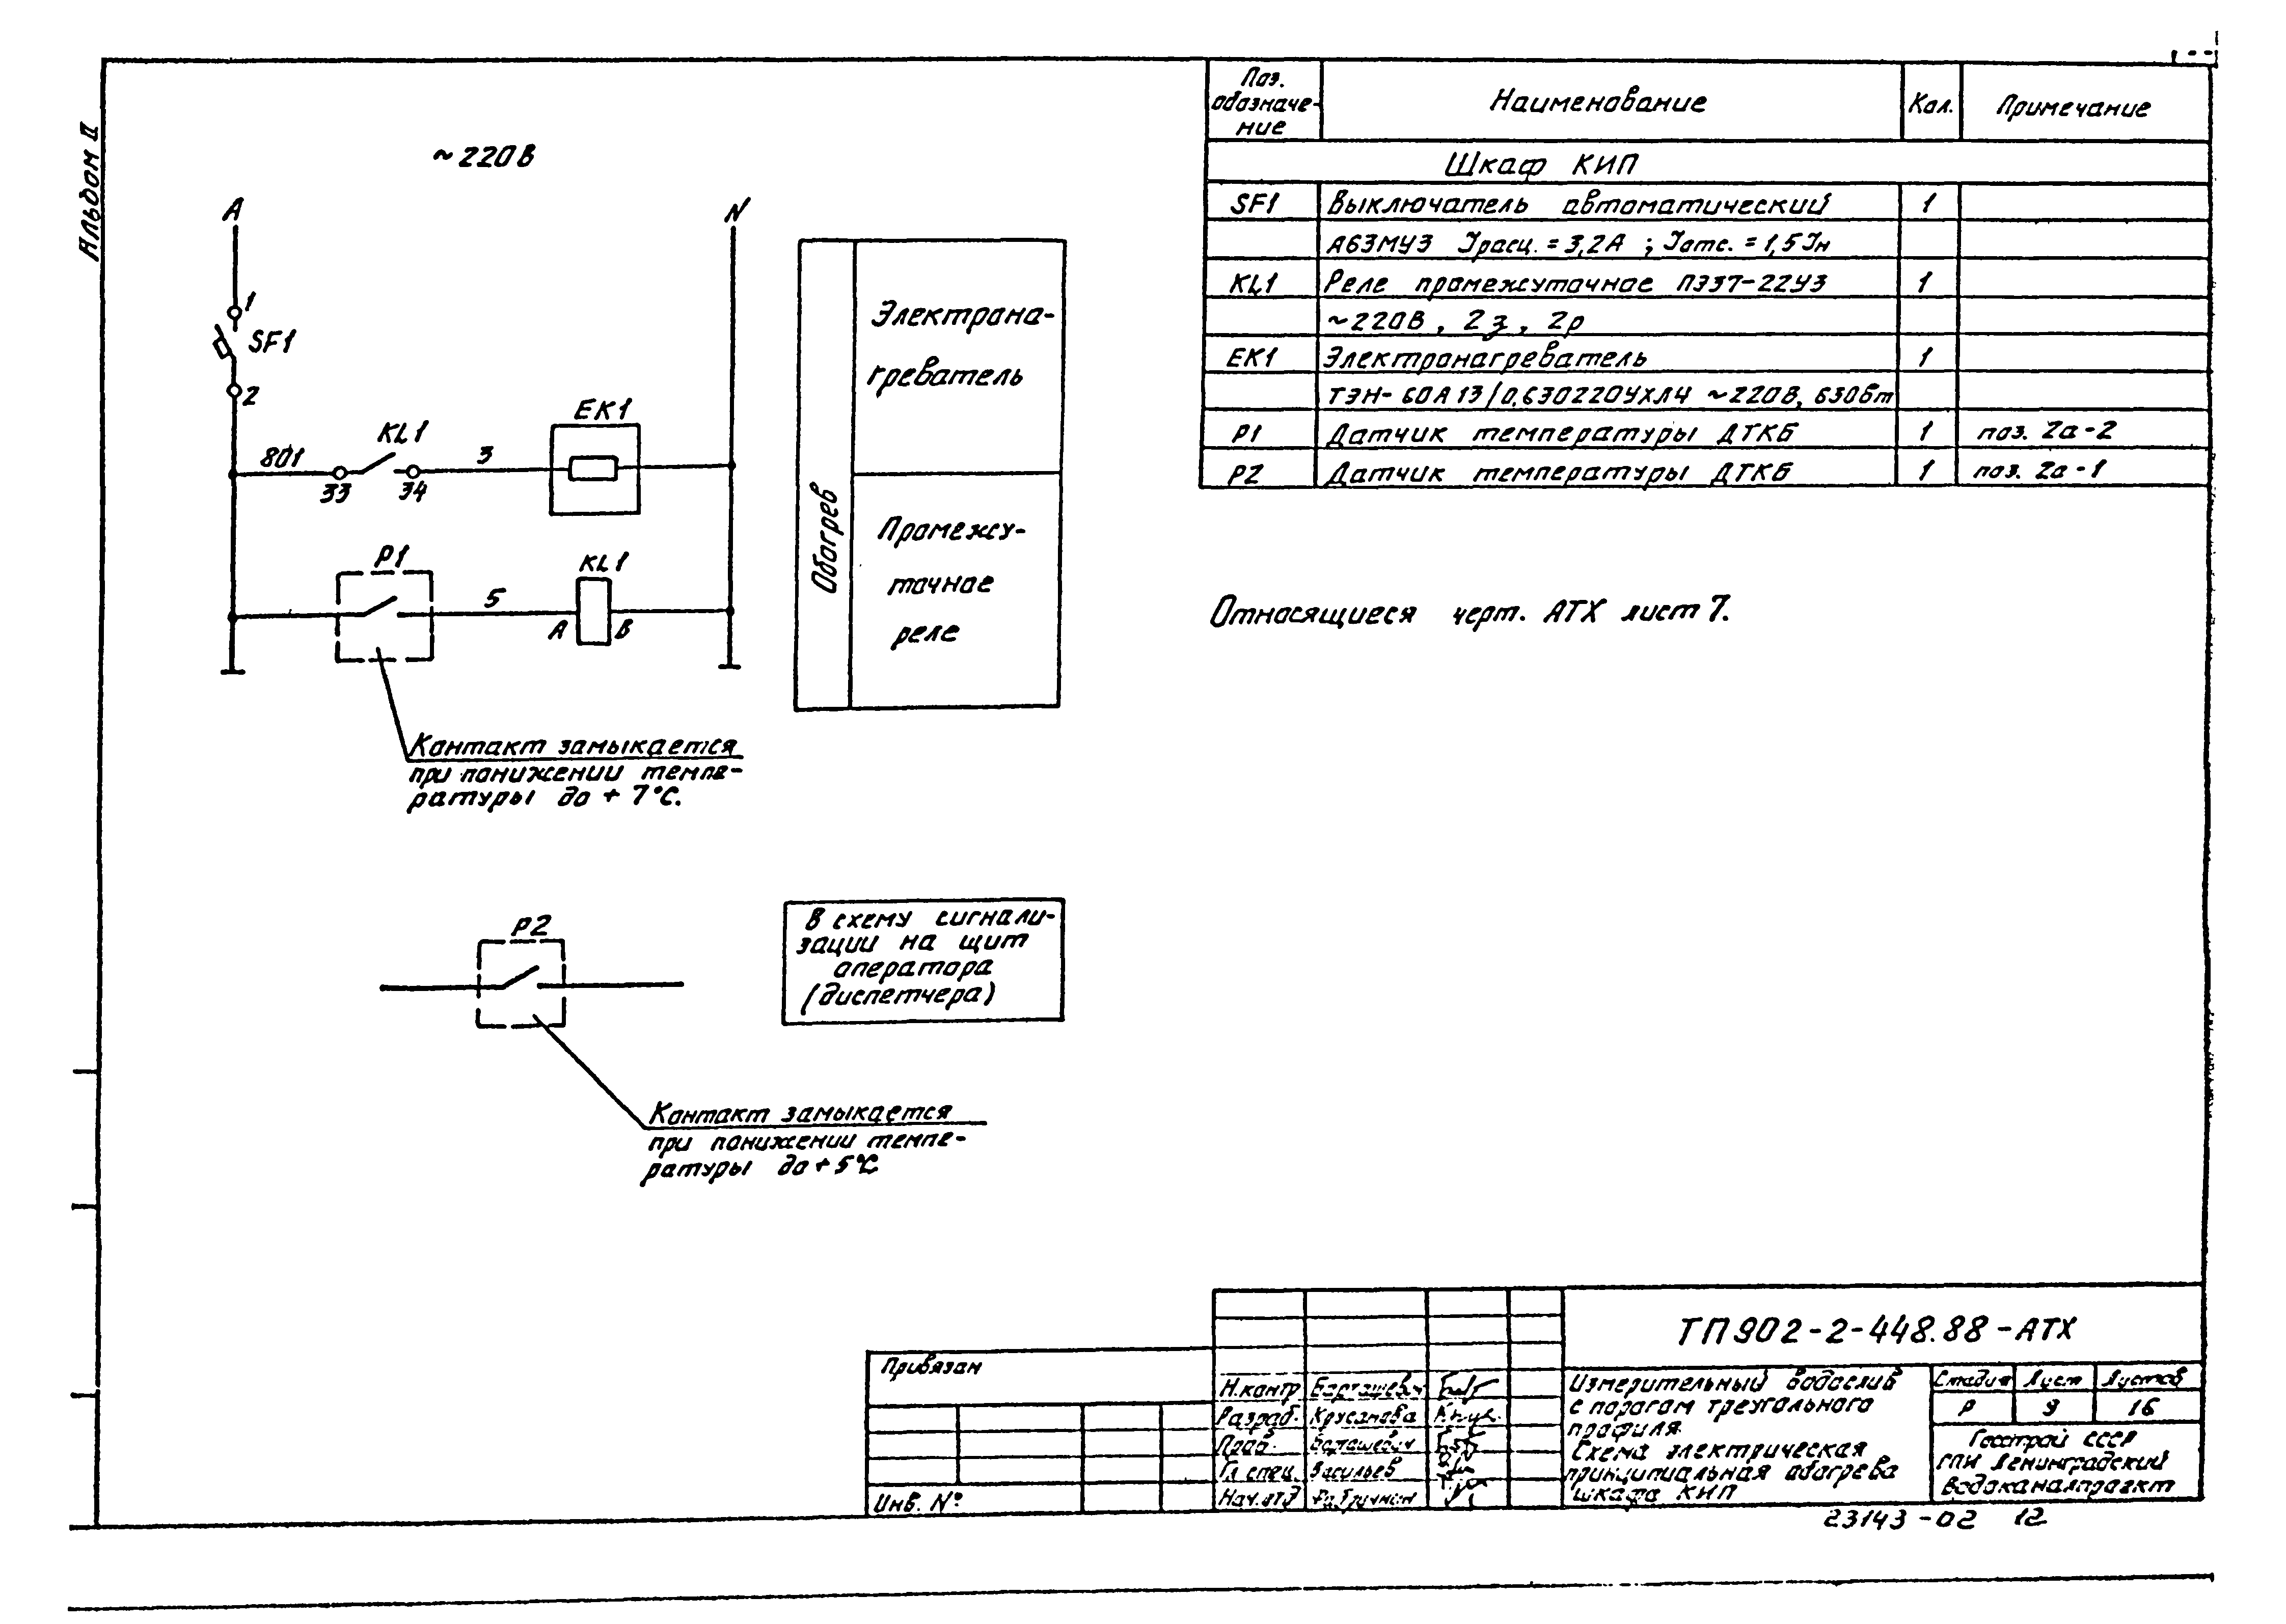 Альбом II
~220В
A
N
1
SF1
2
801
KL1
33
34
3
EK1
P1
5
KL1
A
B
Контакт замыкается
при понижении темпе-
ратуры до +7°С.
Обогрев
Электрона-
греватель
Промежу-
точное
реле
P2
В схему сигнали-
зации на щит
оператора
(диспетчера)
Контакт замыкается
при понижении темпе-
ратуры до +5°С
Поз. обозначе- ние
Наименование
Кол.
Примечание
Шкаф КИП
SF1 Выключатель автоматический 1
А63МУ3 Iрасц. = 3,2А ; Iотс. = 1,5Iн
KL1 Реле промежуточное ПЭ37-22У3 1
~220В, 2з, 2р
EK1 Электронагреватель 1
ТЭН-60А13/0,630220УХЛ4 ~220В, 630Вт
P1 Датчик температуры ДТКБ 1 поз. 2а-2
P2 Датчик температуры ДТКБ 1 поз. 2а-1
Относящиеся черт. АТХ лист 7.
ТП 902-2-448.88-АТХ
Привязан
Инв. №
Н.контр Барташевич
Разраб. Крусанова
Пров. Барташевич
Гл. спец. Васильев
Нач.отд
Измерительный водослив
с порогом треугольного
профиля.
Схема электрическая
принципиальная обогрева
шкафа КИП
Стадия Лист Листов
Р 9 16
Госстрой СССР
ГПИ Ленинградский
Водоканалпроект
23143-02 12